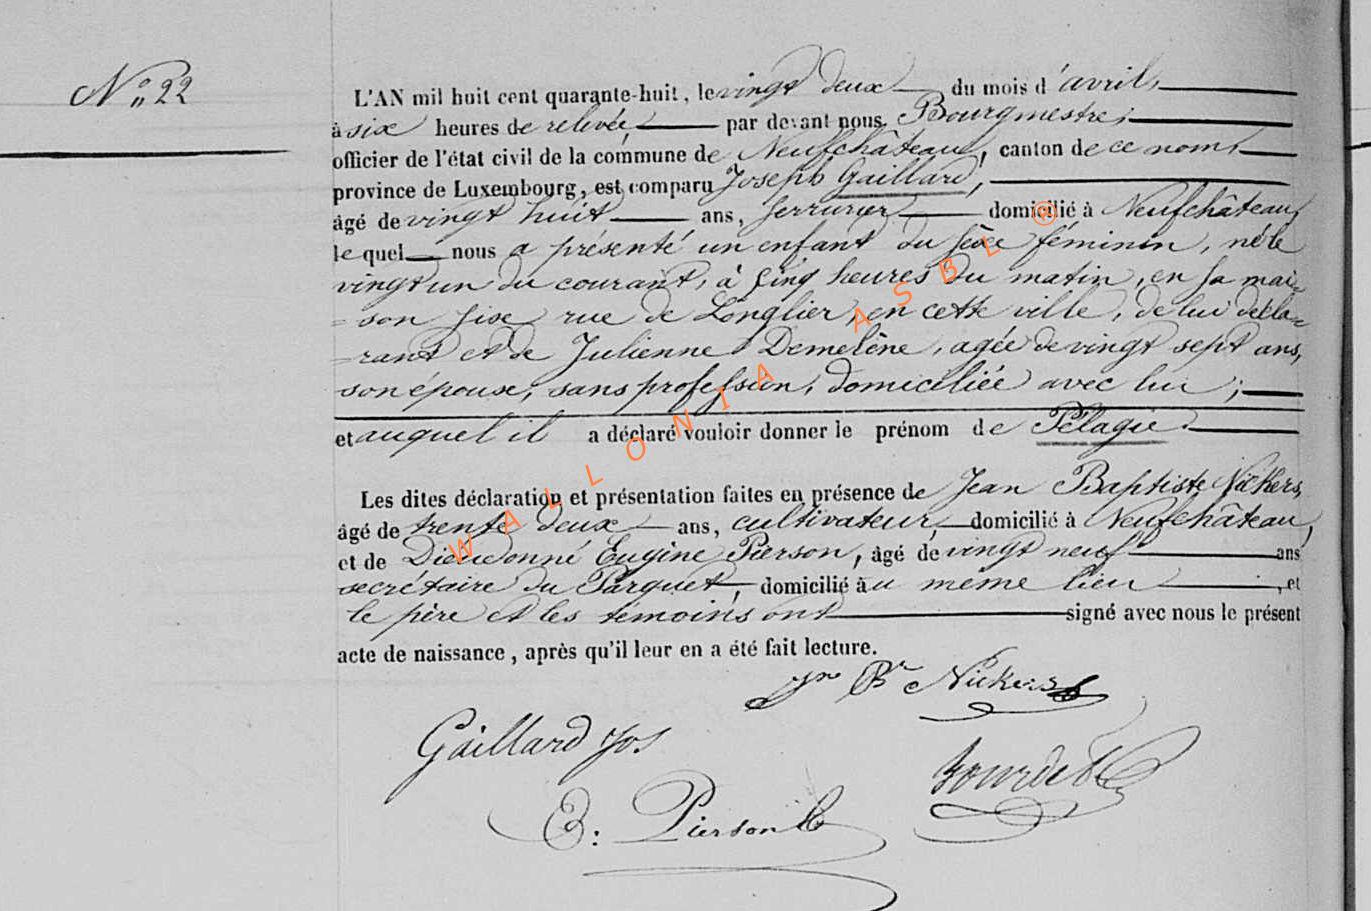 N° 22
L'AN mil huit cent quarante-huit, le vingt deux du mois d'avril,
à six heures de relevée, par devant nous, Bourgmestre,
officier de l'état civil de la commune de Neufchâteau, canton de ce nom,
province de Luxembourg, est comparu Joseph Gaillard,
âgé de vingt huit ans, serrurier domicilié à Neufchâteau,
le quel nous a présenté un enfant du sèxe féminin, né le
vingt un du courant, à cinq heures du matin, en sa mai=
=son sise rue de Longlier, en cette ville, de lui décla=
=rant et de Julienne Demelène, agée de vingt sept ans,
son épouse, sans profession, domiciliée avec lui ;
et auquel il a déclaré vouloir donner le prénom de Pélagie.
Les dites déclaration et présentation faites en présence de Jean Baptiste Nickers,
âgé de trente deux ans, cultivateur, domicilié à Neufchâteau,
et de Dieudonné Eugène Pierson, âgé de vingt neuf ans
secrétaire du Parquet, domicilié au même lieu, et
le père et les témoins ont signé avec nous le présent
acte de naissance, après qu'il leur en a été fait lecture.
Jn Bte Nickers
Gaillard Jos
E. Pierson
WALLONIA ASBL ®